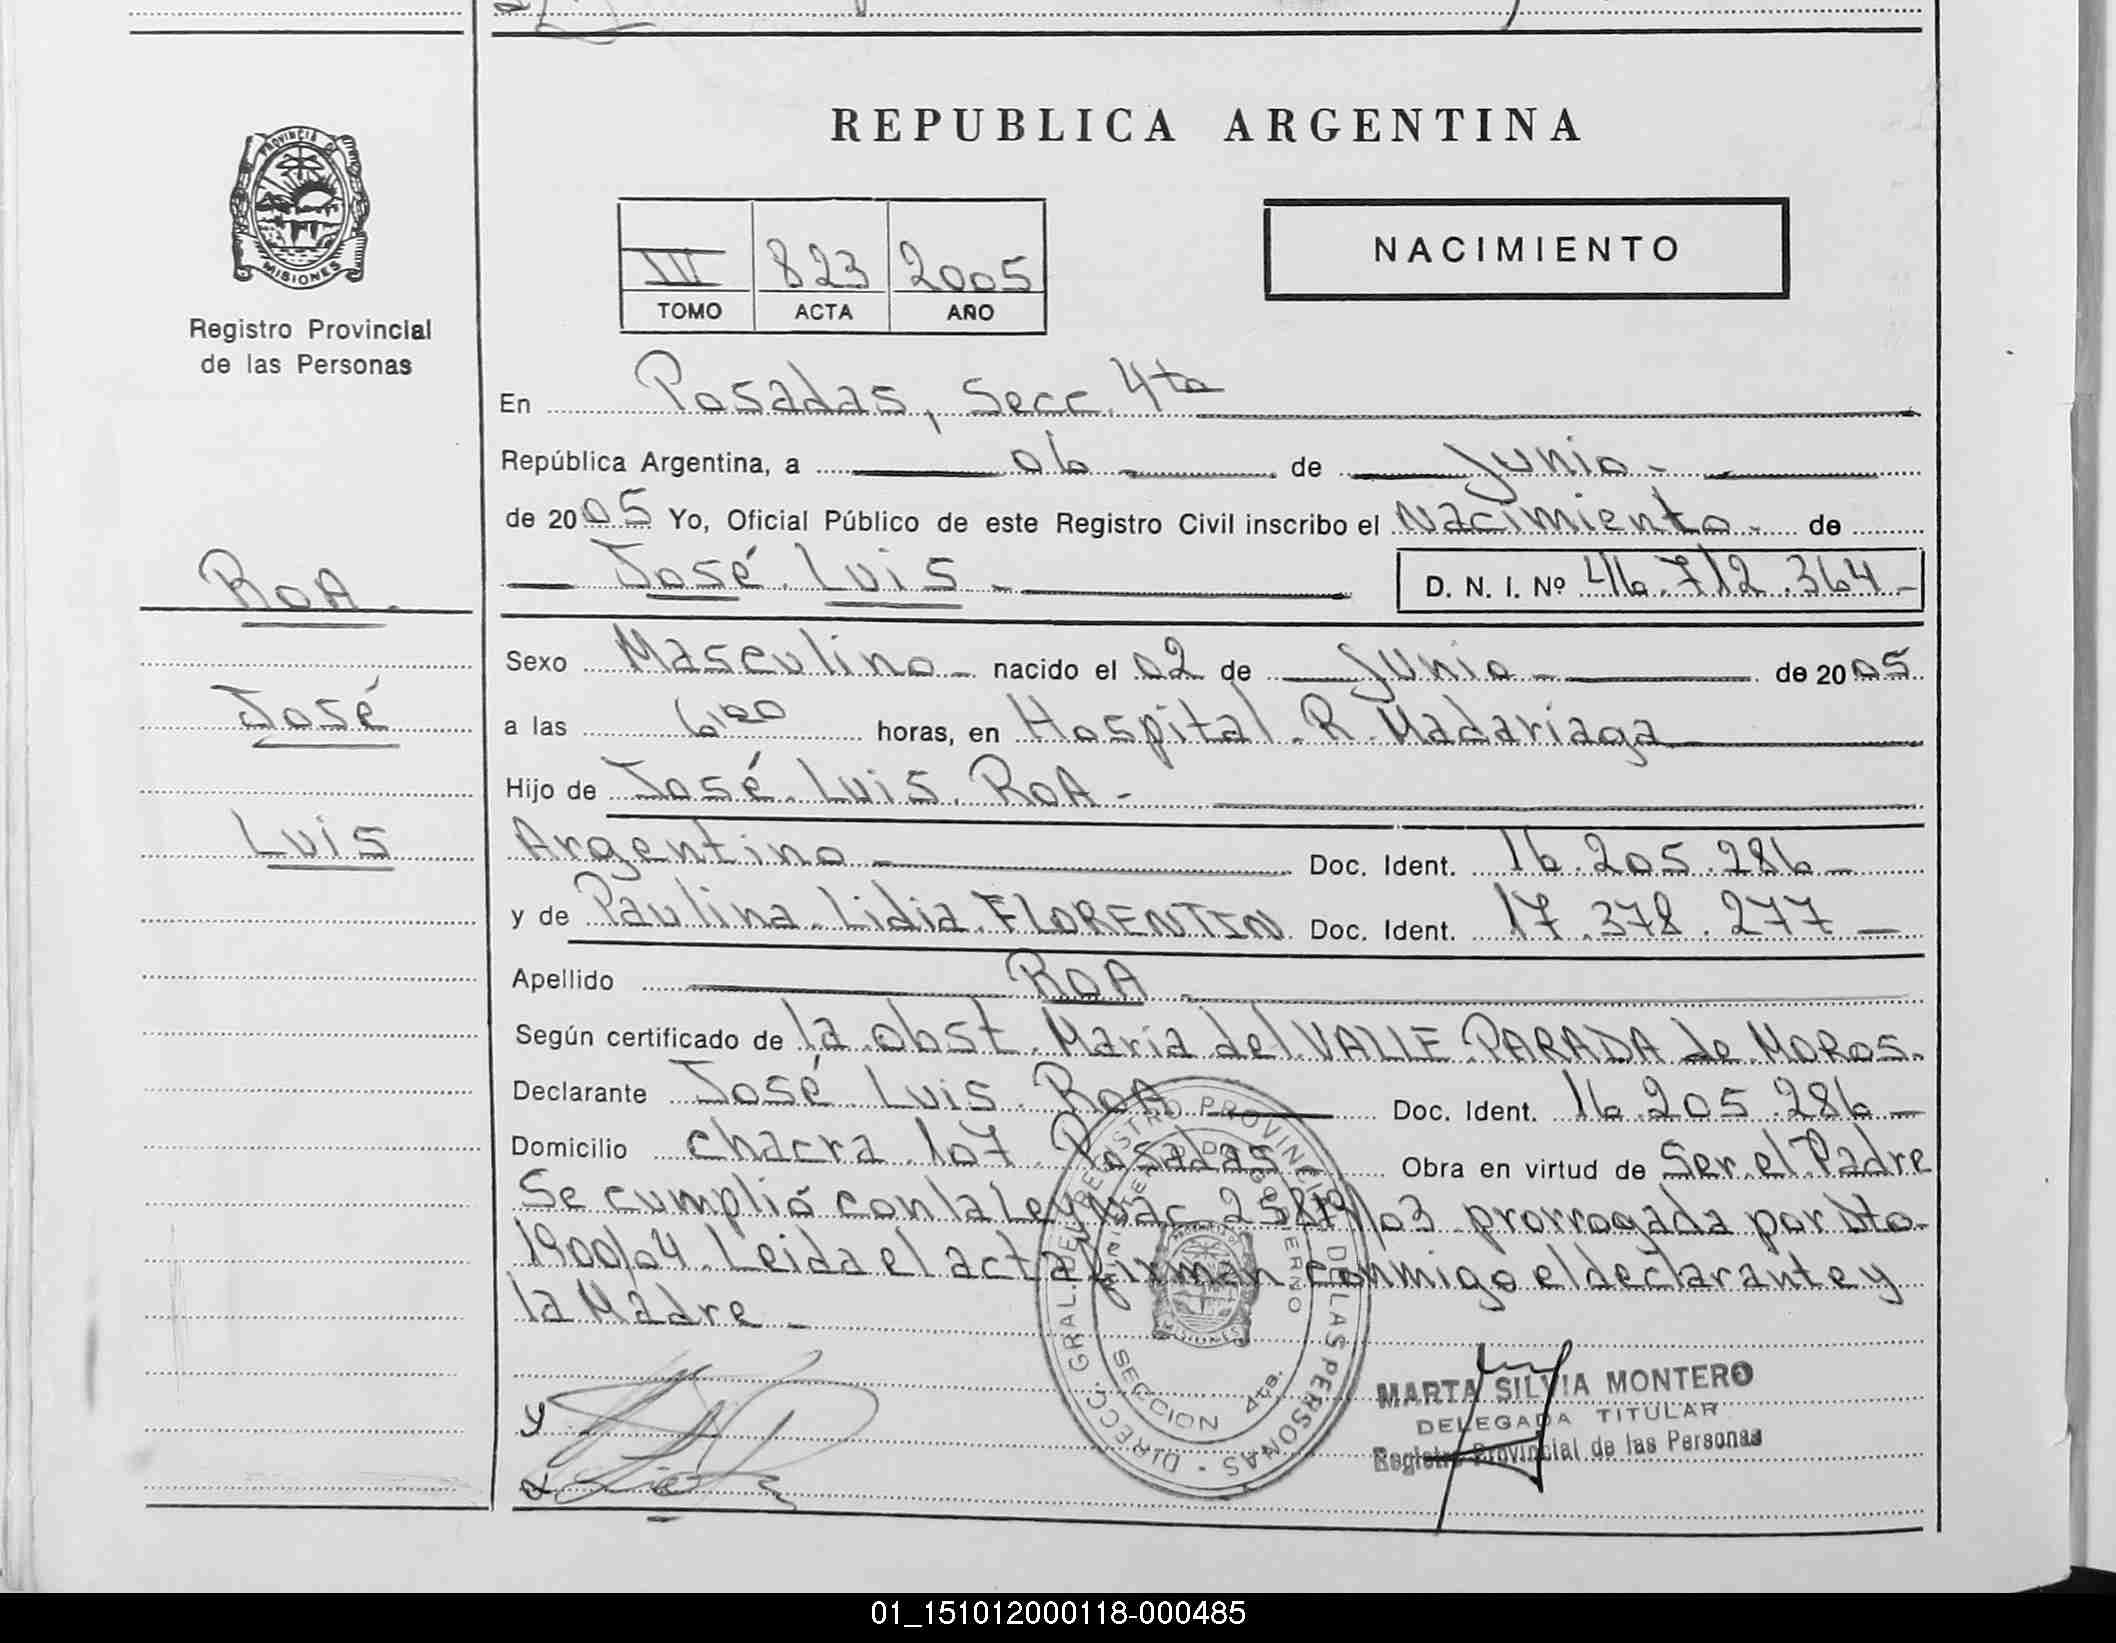 PROVINCIA DE
MISIONES
Registro Provincial
de las Personas
ROA.
José
Luis
REPUBLICA ARGENTINA
III 823 2005
TOMO ACTA AÑO
NACIMIENTO
En Posadas, Secc. 4ta
República Argentina, a 06 de Junio
de 2005 Yo, Oficial Público de este Registro Civil inscribo el Nacimiento de
José Luis D. N. I. Nº 46.712.364
Sexo Masculino nacido el 02 de Junio de 2005
a las 6:00 horas, en Hospital R. Madariaga
Hijo de José Luis ROA
Argentino Doc. Ident. 16.205.286
y de Paulina Lidia FLORENTIN Doc. Ident. 17.378.277
Apellido ROA
Según certificado de la obst. Maria del VALLE PARADA de MOROS.
Declarante José Luis ROA Doc. Ident. 16.205.286
Domicilio chacra 107 Posadas Obra en virtud de Ser el Padre
Se cumplió con la Ley Nac 25819/03 prorrogada por Dto.
1900/04. Leida el acta firman conmigo el declarante y
la Madre
DIRECC. GRAL. DEL REGISTRO PROVINCIAL DE LAS PERSONAS
MINISTERIO DE GOBIERNO
MISIONES
SECCION 4ta.
MARTA SILVIA MONTERO
DELEGADA TITULAR
Registro Provincial de las Personas
01_151012000118-000485